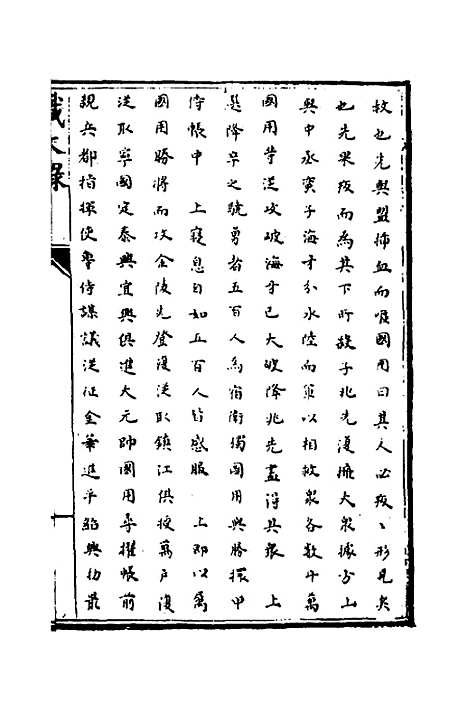 救也先與盟揷血而嘬國用曰其人必叛〻形見矣
也先果叛而為其下所殺子兆先復擁大衆據方山
與中丞蠻子海牙分水陸而軍以相救衆各數十萬
國用等從攻破海牙已大破降兆先盡得其衆　上
選降卒之驍勇者五百人為宿衛獨國用與勝擐甲
侍帳中　上寢息自如五百人皆感服　上即以萬
國用勝將而攻金陵先登復從取鎮江俱授萬戶復
從取寧國定泰興宜興俱進大元帥國用尋擢帳前
親兵都指揮使專侍謀議從征金華進平紹興功最